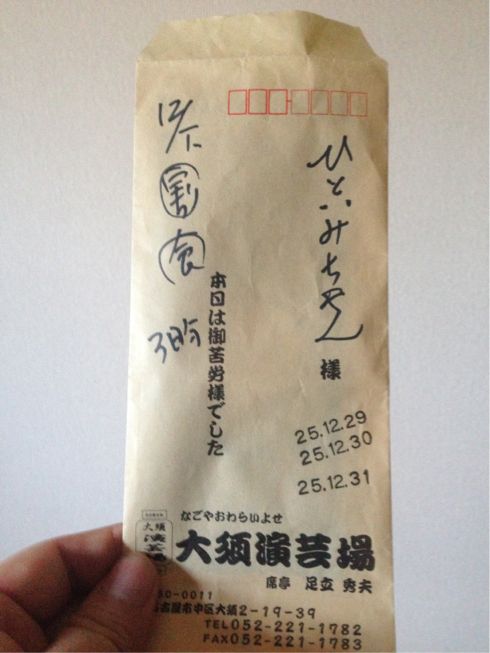 ひとみちゃん 様
25.12.29
25.12.30
25.12.31
12/下 割 食
3日分
本日は御苦労様でした
なごやおわらいよせ
大須演芸場
席亭 足立 秀夫
大須
60-0011
古屋市中区大須2-19-39
TEL052-221-1782
FAX052-221-1783